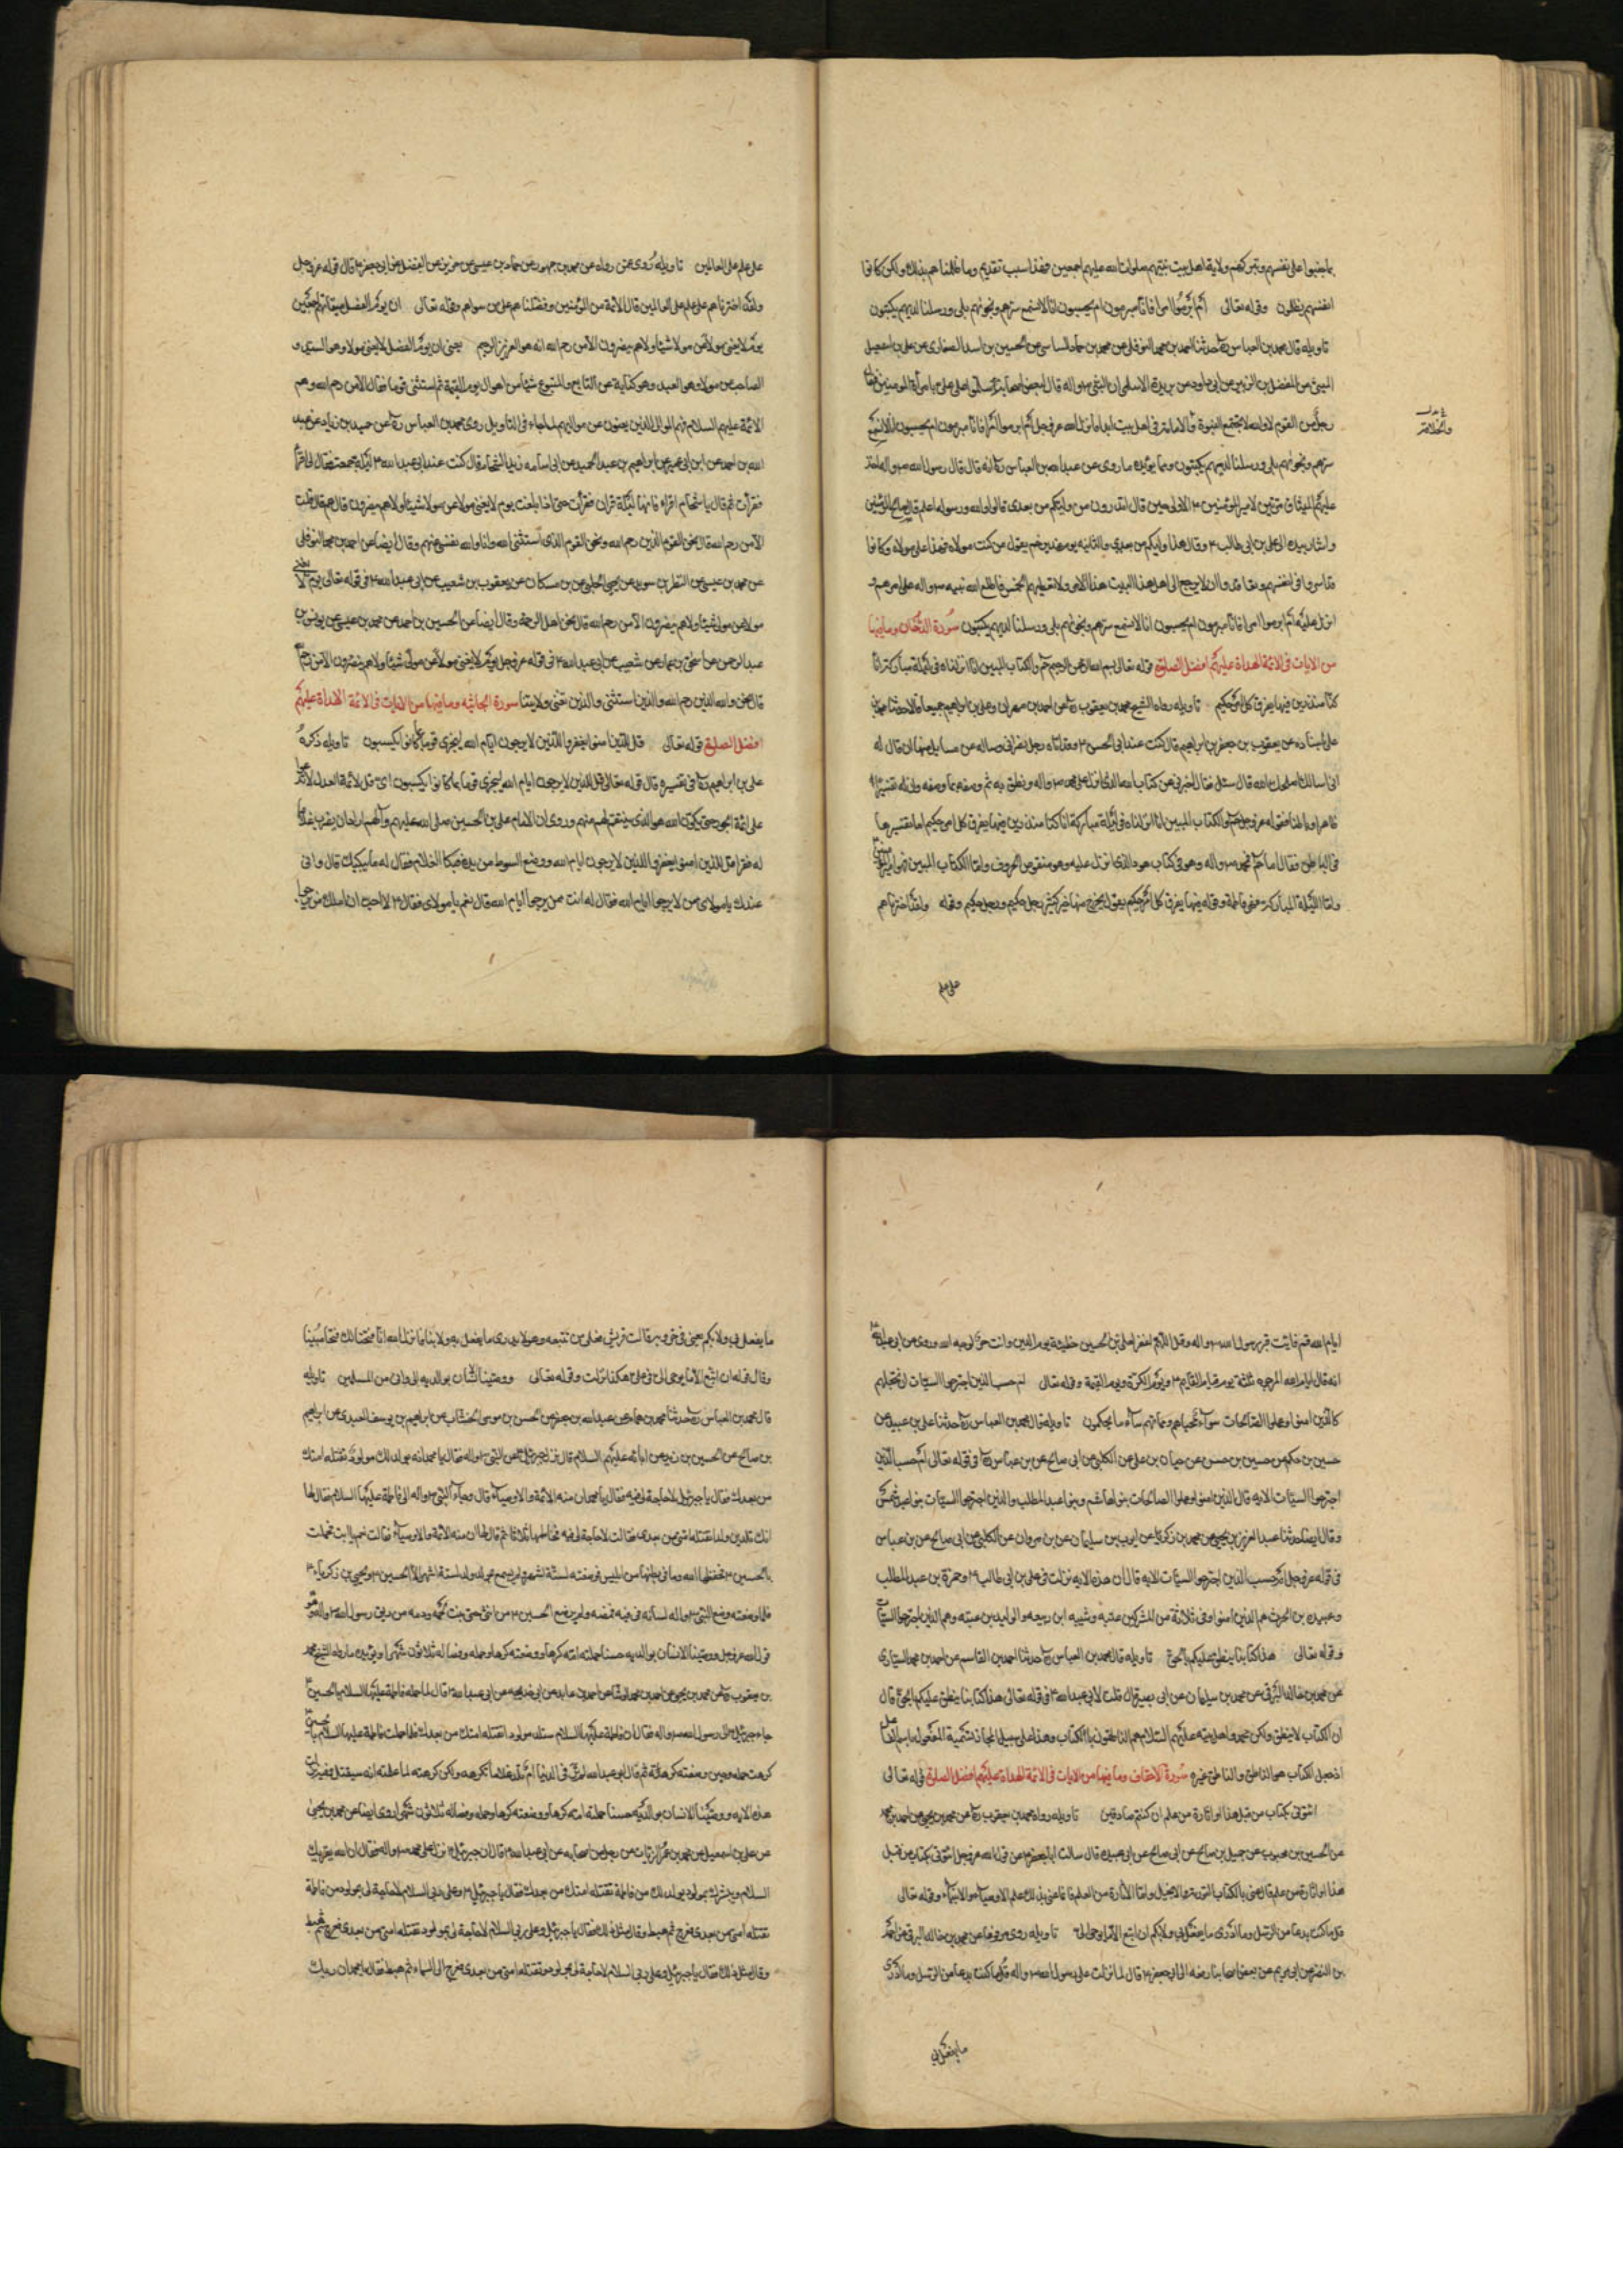 بما جنوا على نفسهم وتبركهم ولاية اهل بيت نبيهم صلوات الله عليهم اجمعين فهذا سبب تقديم وما ظلمناهم بذلك ولكن كانوا
انفسهم يظلمون وقوله تعالى ام ابرموا امرا فانا مبرمون ام يحسبون انا لا نسمع سرهم ونجويهم بلى ورسلنا لديهم يكتبون
تاويله قال محمد بن العباس ره حدثنا احمد بن محمد النوفلى عن محمد بن حماد الشاسى عن الحسين بن اسد الصفارى عن على بن اسمعيل
الميثمى عن المفضل بن الزبير عن ابى داود عن بريدة الاسلمى ان النبى ص واله قال لبعض اصحابه سلموا على على بامرة المؤمنين فقال
رجل من القوم لا والله لا تجتمع النبوة والامامة فى اهل بيت ابدا فانزل الله عز وجل ام ابرموا امرا فانا مبرمون ام يحسبون انا لا نسمع
سرهم ونجويهم بلى ورسلنا لديهم يكتبون ومما يؤيده ما روى عن عبد الله بن العباس ره انه قال قال رسول الله ص واله اخذ
عليهم الميثاق مرتين لامير المؤمنين ع الاولى حين قال اتدرون من وليكم من بعدى قالوا الله ورسوله اعلم قال صالح المؤمنين
واشار بيده الى على بن ابى طالب ع وقال هذا وليكم من بعدى والثانيه يوم غدير خم يقول من كنت مولاه فهذا على مولاه وكانوا
قد اسروا فى انفسهم وتعاقدوا ان لا يرجع الى اهل هذا البيت هذا الامر ولا نعطيهم الخمس فاطلع الله نبيه ص واله على امرهم و
انزل عليه ام ابرموا امرا فانا مبرمون ام يحسبون انا لا نسمع سرهم ونجويهم بلى ورسلنا لديهم يكتبون سورة الدخان وما فيها
من الايات فى الائمة الهداة عليهم افضل الصلوة قوله تعالى بسم الله الرحمن الرحيم حم والكتاب المبين انا انزلناه فى ليلة مباركة انا
كنا منذرين فيها يفرق كل امر حكيم تاويله رواه الشيخ محمد بن يعقوب ره عن احمد بن مهران وعلى بن ابراهيم جميعا قالا حدثنا محمد بن
على باسناده عن يعقوب بن جعفر بن ابراهيم قال كنت عند ابى الحسن ع وقد اتاه رجل نصرانى فساله عن مسايل منها ان قال له
انى اسالك اصلحك الله قال سل فقال اخبرنى عن كتاب الله الذى انزل على محمد ص واله ونطق به ثم وصفه بما وصفه وانه له تفسيرا
ظاهرا وباطنا فقوله عز وجل حم والكتاب المبين انا انزلناه فى ليلة مباركة انا كنا منذرين فيها يفرق كل امر حكيم اما تفسيرها
فى الباطن فقال اما حم محمد ص واله وهو فى كتاب هود الذى انزل عليه وهو منقوص الحروف واما الكتاب المبين فهو امير المؤمنين
واما الليلة المباركة فهى فاطمة وقوله فيها يفرق كل امر حكيم يقول يخرج منها خير كثير رجل حكيم ورجل حكيم وقوله ولقد اخترناهم
على علم
على علم على العالمين تاويله روى عن رواه عن محمد بن جمهور عن حماد بن عيسى عن حريز عن الفضيل عن ابى جعفر ع قال قوله عز وجل
ولقد اخترناهم على علم على العالمين قال الائمة من المؤمنين وفضلناهم على من سواهم وقوله تعالى ان يوم الفصل ميقاتهم اجمعين
يوم لا يغنى مولا عن مولا شيئا ولا هم ينصرون الا من رحم الله انه هو العزيز الرحيم يعنى ان يوم الفصل لا يغنى مولا وهو السيد و
الصاحب عن مولا وهو العبد وهو كناية عن التابع والمتبوع شيئا من اهوال يوم القيمة ثم استثنى قوما فقال الا من رحم الله وهم
الائمة عليهم السلام فهم الموالى الذين يغنون عن مواليهم لما جاء فى التاويل روى محمد بن العباس ره عن حميد بن زياد عن عبد
الله بن احمد عن ابن ابى عمير عن ابراهيم بن عبد الحميد عن ابى اسامه زيد الشحام قال كنت عند ابى عبد الله ع ليلة جمعة فقال لى اقرأ
فقرأت ثم قال يا شحام اقرء فانها ليلة قران فقرأت حتى اذا بلغت يوم لا يغنى مولا عن مولا شيئا ولا هم ينصرون قال هم قال قلت
الا من رحم الله قال نحن القوم الذين رحم الله ونحن القوم الذى استثنى الله وانا والله نغنى عنهم وقال ايضا عن احمد بن محمد النوفلى
عن محمد بن عيسى عن النضر بن سويد عن يحيى الحلبى عن بن مسكان عن يعقوب بن شعيب عن ابى عبد الله ع فى قوله تعالى يوم لا يغنى
مولا عن مولا شيئا ولا هم ينصرون الا من رحم الله قال نحن اهل الرحمة وقال ايضا عن الحسين بن احمد عن محمد بن عيسى عن يونس بن
عبد الرحمن عن اسحق بن عمار عن شعيب عن ابى عبد الله ع فى قوله عز وجل يوم لا يغنى مولا عن مولى شيئا ولا هم ينصرون الا من رحم الله
قال نحن والله الذين رحم الله والذين استثنى والذين تغنى ولايتنا سورة الجاثيه وما فيها من الايات فى الائمة الهداة عليهم
افضل الصلوة قوله تعالى قل للذين امنوا يغفروا للذين لا يرجون ايام الله ليجزى قوما بما كانوا يكسبون تاويله ذكره
على بن ابراهيم ره فى تفسيره قال قوله تعالى قل للذين لا يرجون ايام الله ليجزى قوما بما كانوا يكسبون اى قل لائمة العدل لا تدعوا
على ائمة الجور حتى يكون الله هو الذى ينتقم لهم منهم وروى ان الامام على بن الحسين صلى الله عليهم والهم اراد ان يضرب غلاما
له فقرا قل للذين امنوا يغفروا للذين لا يرجون ايام الله ووضع السوط من يده فبكا الغلام فقال له ما يبكيك قال وانى
عندك يا مولاى ممن لا يرجوا ايام الله فقال له انت ممن يرجوا ايام الله قال نعم يا مولاى فقال ع لا احب ان املك من يرجوا
ايام الله قم فأت قبر رسول الله ص واله وقل اللهم اغفر لعلى بن الحسين خطيئته يوم الدين وانت حر لوجه الله وروى عن ابى عبد الله
انه قال ايام الله المرجوه ثلثة يوم قيام القايم ع ويوم الكرة ويوم القيمة وقوله تعالى ام حسب الذين اجترحوا السيئات ان نجعلهم
كالذين امنوا وعملوا الصالحات سواء محياهم ومماتهم ساء ما يحكمون تاويله قال محمد بن العباس ره حدثنا على بن عبيد عن
حسين بن حكم عن حسن بن حسين عن حيان بن على عن الكلبى عن ابى صالح عن بن عباس ره فى قوله تعالى ام حسب الذين
اجترحوا السيئات الايه قال الذين امنوا وعملوا الصالحات بنو هاشم وبنو عبد المطلب والذين اجترحوا السيئات بنو عبد شمس
وقال ايضا حدثنا عبد العزيز بن يحيى عن محمد بن زكريا عن ايوب بن سليمان عن بن مروان عن الكلبى عن ابى صالح عن بن عباس
فى قوله عز وجل ام حسب الذين اجترحوا السيئات الايه قال ان هذه الايه نزلت فى على بن ابى طالب ع وحمزة بن عبد المطلب
وعبيده بن الحرث هم الذين امنوا وفى ثلاثة من المشركين عتبه وشيبه ابن ربيعه والوليد بن عتبه وهم الذين اجترحوا السيئات
وقوله تعالى هذا كتابنا ينطق عليكم بالحق تاويله قال محمد بن العباس ره حدثنا احمد بن القاسم عن احمد بن محمد السيارى
عن محمد بن خالد البرقى عن محمد بن سليمان عن ابى بصير قال قلت لابى عبد الله ع قوله تعالى هذا كتابنا ينطق عليكم بالحق قال
ان الكتاب لا ينطق ولكن محمد واهل بيته عليهم السلام هم الناطقون بالكتاب وهذا على سبيل المجاز تسمية المفعول باسم الفاعل
اذ جعل الكتاب هو الناطق والناطق غيره سورة الاحقاف وما فيها من الايات فى الائمة الهداة عليهم افضل الصلوة قوله تعالى
ائتونى بكتاب من قبل هذا او اثارة من علم ان كنتم صادقين تاويله رواه محمد بن يعقوب ره عن محمد بن يحيى عن احمد بن محمد
عن الحسن بن محبوب عن جميل بن صالح عن ابى عبيده قال سالت ابا جعفر ع عن قول الله عز وجل ائتونى بكتاب من قبل
هذا او اثارة من علم قال عنى بالكتاب التورية والانجيل واما الاثارة من العلم فانما عنى بذلك علم الاوصياء الانبياء وقوله تعالى
قل ما كنت بدعا من الرسل وما ادرى ما يفعل بى ولا بكم ان اتبع الا ما يوحى الى تاويله روى مرفوعا عن محمد بن خالد البرقى عن احمد
بن النضر عن ابى مريم عن بعض اصحابنا رفعه الى ابى جعفر ع قال لما نزلت على رسول الله ص واله قل ما كنت بدعا من الرسل وما ادرى
ما يفعل بى
ما يفعل بى ولا بكم يعنى فى حروبه قالت قريش فعلى من نتبعه وهو لا يدرى ما يفعل به ولا بنا فانزل الله انا فتحنا لك فتحا مبينا
وقال قوله ان اتبع الا ما يوحى الى فى على هكذا نزلت وقوله تعالى ووصينا الانسان بوالديه الى وانى من المسلمين تاويله
قال محمد بن العباس ره حدثنا محمد بن همام عن عبد الله بن جعفر عن الحسن بن موسى الخشاب عن ابراهيم بن يوسف العبدى عن ابراهيم
بن صالح عن الحسين بن زيد عن ابائه عليهم السلام قال نزل جبرئيل على النبى ص واله فقال يا محمد انه يولد لك مولود تقتله امتك
من بعدك فقال يا جبرئيل لا حاجة لى فيه فقال يا محمد ان منه الائمة والاوصياء قال وجاء النبى ص واله الى فاطمة عليها السلام فقال لها
انك تلدين ولدا تقتله امتى من بعدى فقالت لا حاجة لى فيه فخاطبها ثلاثا ثم قال لها ان منه الائمة والاوصياء فقالت نعم يا ابت فحملت
بالحسين ع فحفظها الله وما فى بطنها من ابليس فوضعته لستة اشهر ولم يسمع بمولود ولد لستة اشهر الا الحسين ع ويحيى بن زكرياء ع
فلما وضعته وضع النبى ص واله لسانه فى فيه فمصه ولم يرضع الحسين ع من انثى حتى نبت لحمه ودمه من ريق رسول الله ص واله وهو
قول الله عز وجل ووصينا الانسان بوالديه حسنا حملته امه كرها ووضعته كرها وحمله وفصاله ثلاثون شهرا ويؤيده ما رواه الشيخ محمد
بن يعقوب ره عن محمد بن يحيى عن احمد بن محمد عن الوشاء عن احمد بن عايذ عن ابى خديجه عن ابى عبد الله ع قال لما حملت فاطمة عليها السلام بالحسين ع
جاء جبرئيل الى رسول الله ص واله فقال ان فاطمة عليها السلام ستلد مولودا تقتله امتك من بعدك فلما حملت فاطمة عليها السلام بالحسين ع
كرهت حمله وحين وضعته كرهته ثم قال ابو عبد الله لم تر فى الدنيا ام تلد غلاما تكرهه ولكن كرهته لما علمته انه سيقتل وفيه نزلت
هذه الايه ووصينا الانسان بوالديه حسنا حملته امه كرها ووضعته كرها وحمله وفصاله ثلاثون شهرا وروى ايضا عن محمد بن يحيى
عن على بن اسمعيل عن محمد بن عمر الزيات عن رجل من اصحابه عن ابى عبد الله ع قال ان جبرئيل ع نزل على محمد ص واله فقال ان الله يقرئك
السلام ويبشرك بمولود يولد لك من فاطمة تقتله امتك من بعدك فقال يا جبرئيل ع وعلى ربى السلام لا حاجة لى بمولود من فاطمة
تقتله امتى من بعدى فعرج ثم هبط وقال مثل ذلك فقال يا جبرئيل وعلى ربى السلام لا حاجة لى بمولود تقتله امتى من بعدى فعرج ثم هبط
وقال مثل ذلك فقال يا جبرئيل وعلى ربى السلام لا حاجة لى بمولود تقتله امتى من بعدى فعرج الى السماء ثم هبط فقال يا محمد ان ربك